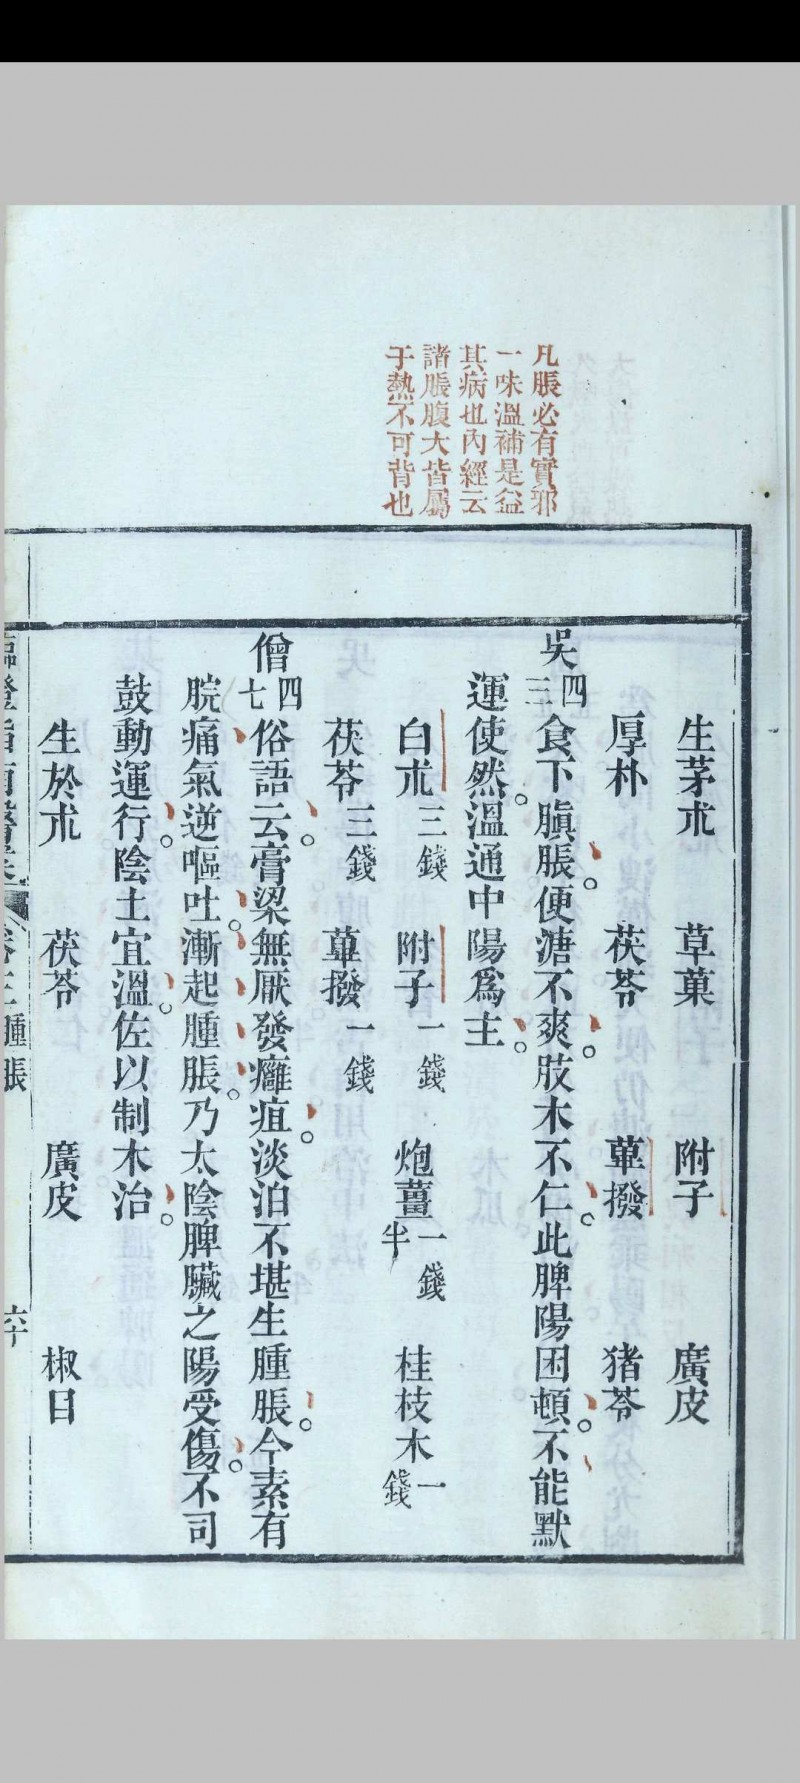 凡脹必有實邪
一味溫補是益
其病也內經云
諸脹腹大皆屬
于熱不可背也
生茅朮　草菓　附子　廣皮
厚朴　茯苓　蓽撥　猪苓
吳四三食下䐜脹便溏不爽肢木不仁此脾陽困頓不能默
運使然溫通中陽爲主
白朮三錢　附子一錢　炮薑一錢半　桂枝木一錢
茯苓三錢　蓽撥一錢
僧四七俗語云膏粱無厭發癰疽淡泊不堪生腫脹今素有
脘痛氣逆嘔吐漸起腫脹乃太陰脾臟之陽受傷不司
鼓動運行陰土宜溫佐以制木治
生於朮　茯苓　廣皮　椒目
臨證指南醫案　卷三腫脹　六十